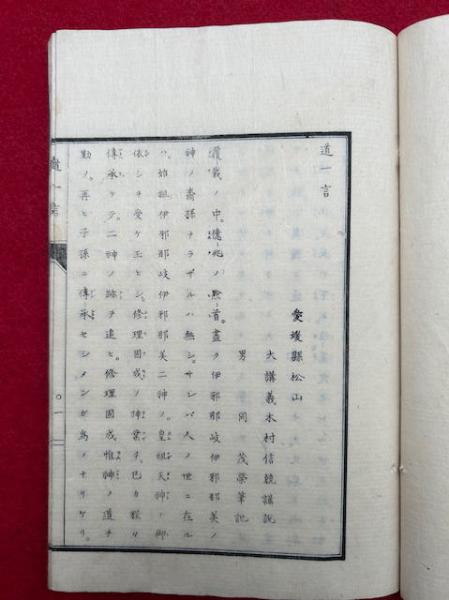 道一言
愛媛縣松山
大講義木村信競講說
男 同 茂榮筆記
農戯ノ中。億兆ノ黔首。盡ク伊邪那岐伊邪那美ノ
神ノ裔孫ナラザルハ無シ。サレバ人ノ世ニ在ル
ハ始祖伊邪那岐伊邪那美二神ノ。皇祖天神ノ御
依シヲ受ケ玉ヒシ。修理固成ノ神業ヲ。已カ種リ
傳承ケテ。二神ノ跡ヲ逐ヒ。修理固成惟神ノ道ヲ
勤メ。再ヒ子孫ニ傳承セシメンガ爲メナリケリ。
道一言
○一